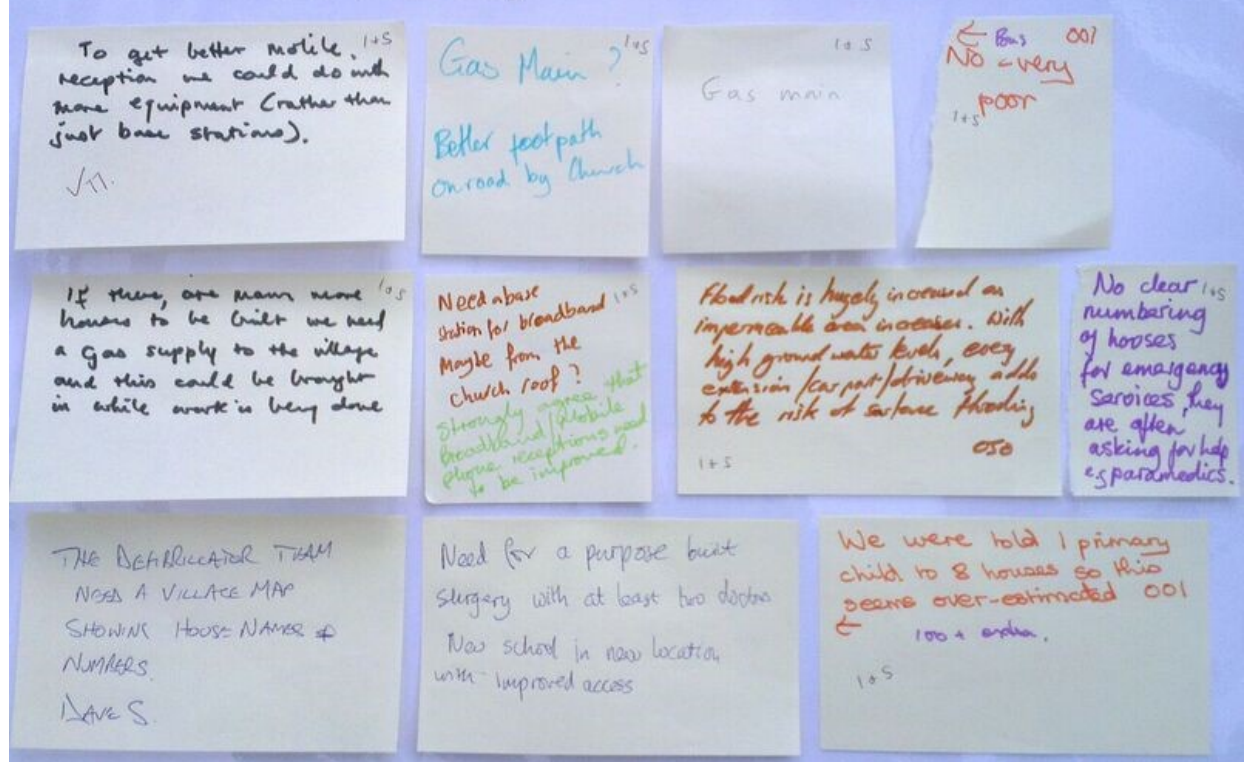 To get better mobile 1+S
reception we could do with
more equipment (rather than
just base stations).
Gas Main ? 1+S
Better footpath
on road by Church
1+S
Gas main
← Bus 001
No - very
poor
1+S
If there, are many more 1+S
houses to be built we need
a Gas supply to the village
and this could be brought
in while work is being done
Need a base 1+S
station for broadband
Maybe from the
church roof ?
strongly agree that
broadband/mobile
phone receptions need
to be improved.
Flood risk is hugely increased as
impermeable area increases. With
high ground water levels, every
extension/car port/driveway adds
to the risk of surface flooding
050
1+S
No clear 1+S
numbering
of houses
for emergency
services, they
are often
asking for help
e.g paramedics.
THE DEFIBRILLATOR TEAM
NEED A VILLAGE MAP
SHOWING HOUSE NAMES +
NUMBERS.
DAVE S.
Need for a purpose built
surgery with at least two doctors
New school in new location
with improved access
We were told 1 primary
child to 8 houses so this
seems over-estimated 001
← 100 + extra.
1+S